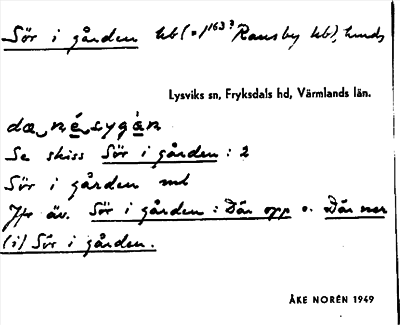 Sör i gården hb (= 1/163? Ransby hb), hmds
Lysviks sn, Fryksdals hd, Värmlands län.
dæ né sygán
Se skiss Sör i gården : 2
Sör i gården
Jfr äv. Sör i gården : Där opp o. Där ner
(i) Sör i gården.
ÅKE NORÉN 1949